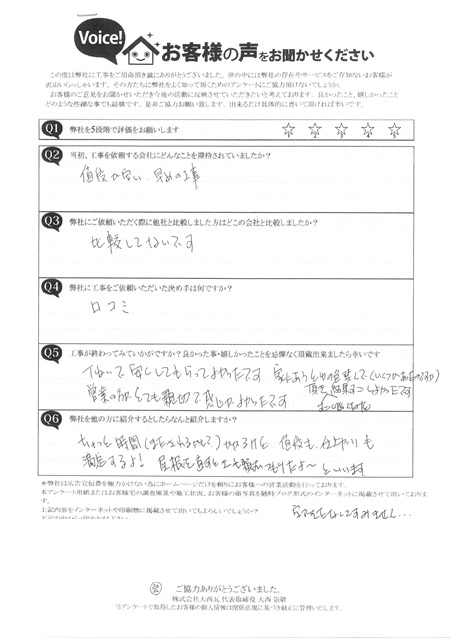 Voice!
お客様の声をお聞かせください
この度は弊社に工事をご用命頂き誠にありがとうございました。世の中には弊社の存在やサービスをご存知ないお客様が
沢山いらっしゃいます。その方たちに弊社をよく知って頂くためのアンケートにご協力頂けないでしょうか。
お客様のご意見をお聞かせいただき今後の活動に反映させていただきたいと考えております。良かったこと、嬉しかったこと
どのような些細な事でも結構です。是非ご協力お願い致します。出来るだけ具体的に書いて頂ければ幸いです。
Q1 弊社を5段階で評価をお願いします ☆ ☆ ☆ ☆ ☆
Q2 当初、工事を依頼する会社にどんなことを期待されていましたか?
値段が安い、早めの工事
Q3 弊社にご依頼いただく際に他社と比較しました方はどこの会社と比較しましたか?
比較してないです
Q4 弊社に工事をご依頼いただいた決め手は何ですか?
口コミ
Q5 工事が終わってみていかがですか?良かった事・嬉しかったことを忌憚なく頂戴出来ましたら幸いです
直してもらってよかったです
営業の方もとても親切で感じがよかったです
頂き、結果よかったです
Q6 弊社を他の方に紹介するとしたらなんと紹介しますか?
ちょっと時間 かかるけど 値段も、仕上がりも
満足するよ! といいます
*弊社は広告宣伝費を極力かけない為にホームページだけを頼りにお客様への営業活動を行っております。
本アンケート用紙またはお客様宅の調査風景や施工状況、お客様の顔写真を随時ブログ形式のインターネットに掲載させて頂いております。
上記内容をインターネットや印刷物に掲載させて頂いてもよろしいでしょうか?
すみません…
ご協力ありがとうございました。
株式会社大西瓦 代表取締役 大西 崇敬
当アンケートで取得したお客様の個人情報は関係法規に基づき厳正に管理いたします。